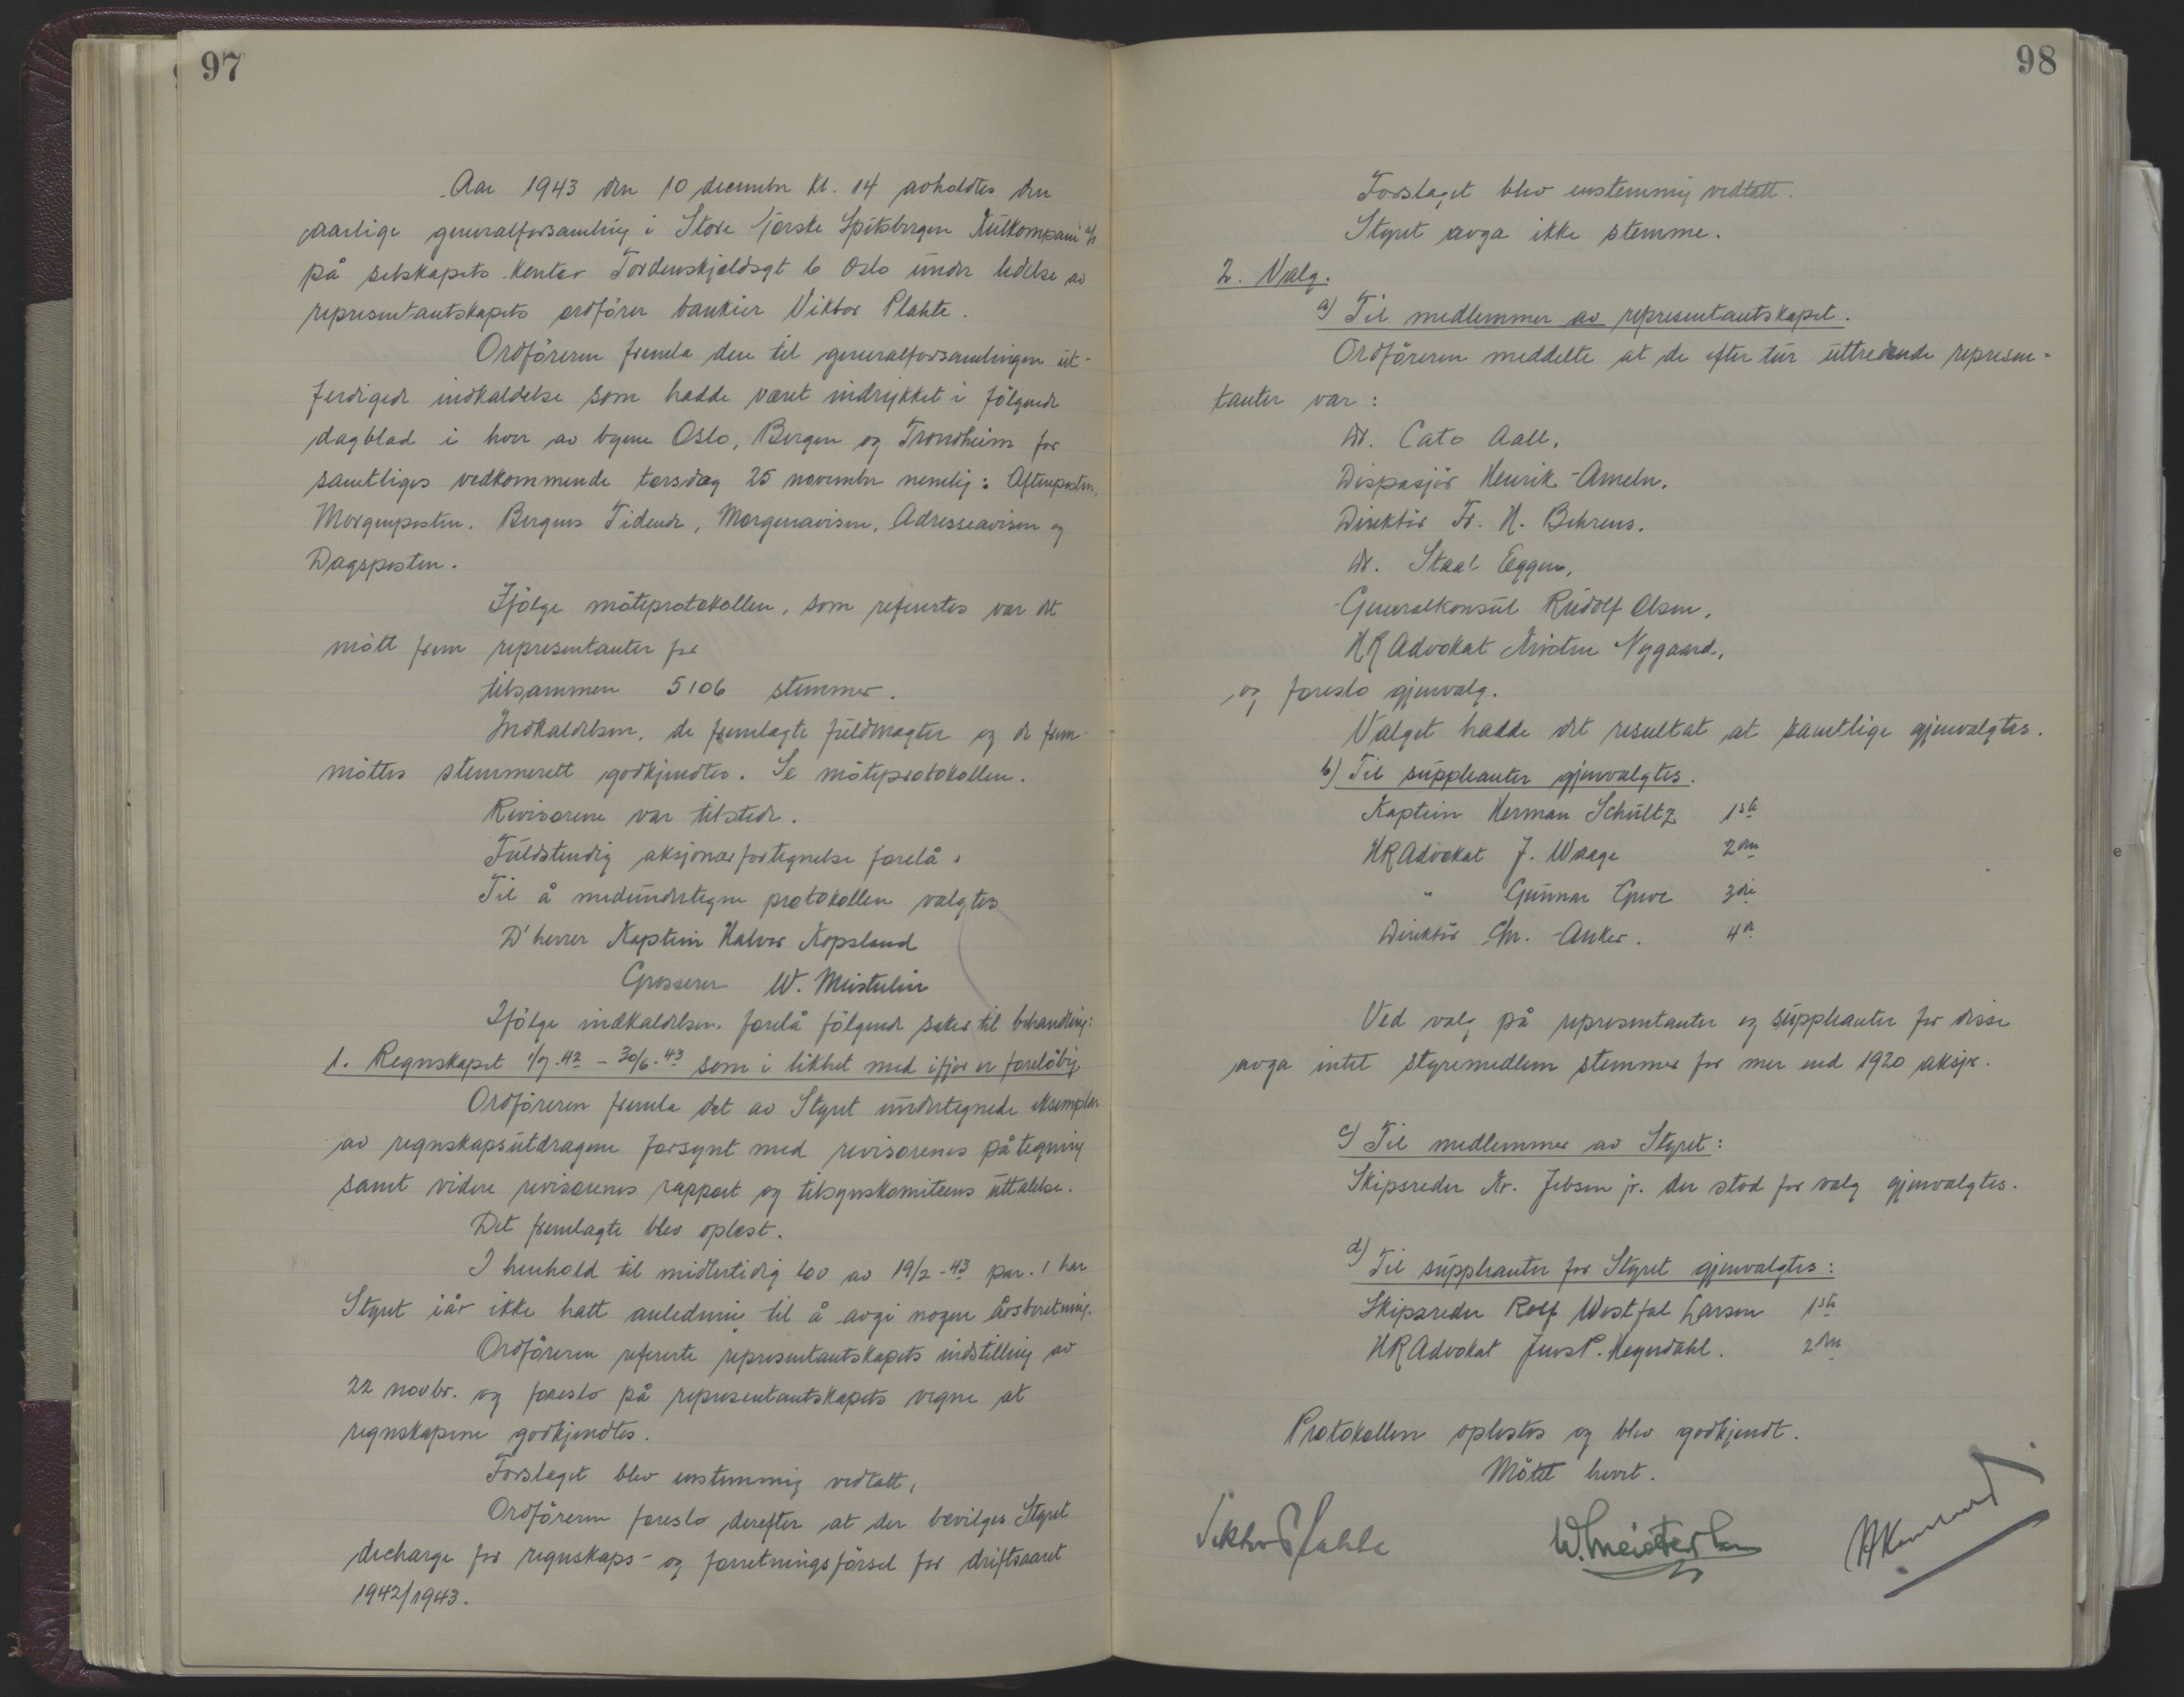 97
Aar 1943 den 10 december kl. 14 avholdtes den
aarlige generalforsamling i Store Norske Spitsbergen Kulkompani A/S
på selskapets kontor Tordenskjoldsgt 6 Oslo under ledelse av
representantskapets ordfører bankier Viktor Plahte.
Ordføreren fremla den til generalforsamlingen ut-
ferdigede indkaldelse som hadde været indrykket i følgende
dagblad i hver av byene Oslo, Bergen og Trondheim for
samtliges vedkommende torsdag 25 november nemlig: Aftenposten,
Morgenposten, Bergens Tidende, Morgenavisen, Adresseavisen og
Dagsposten.
Ifølge møteprotokollen, som refertes var det
møtt frem representanter for
tilsammen 5106 stemmer.
Indkaldelsen, de fremlagte fuldmagter og de frem-
møttes stemmerett godkjendtes. Se møteprotokollen.
Revisorene var tilstede.
Fuldstendig aksjonærfortegnelse forelå.
Til å medundertegne protokollen valgtes
D'herrer Kaptein Halvor Kopsland
Grosserer W. Meisterlin
Ifølge indkaldelsen forelå følgende saker til behandling:
1. Regnskapet 1/7-42 - 30/6-43 som i likhet med ifjor er foreløbig
Ordføreren fremla det av Styret undertegnede eksemplar
av regnskapsutdragene forsynt med revisorenes påtegning
samt videre revisorenes rapport og tilsynskomiteens uttalelse.
Det fremlagte blev oplæst.
I henhold til midlertidig lov av 19/2-43 par. 1 har
Styret iår ikke hatt anledning til å avgi nogen årsberetning.
Ordføreren refererte representantskapets indstilling av
22 novbr. og foreslo på representantskapets vegne at
regnskapene godkjendtes.
Forslaget blev enstemmig vedtatt,
Ordføreren foreslo derefter at der bevilges Styret
decharge for regnskaps- og forretningsførsel for driftsaaret
1942/1943.
98
Forslaget blev enstemmig vedtatt.
Styret avga ikke stemme.
2. Valg.
a) Til medlemmer av representantskapet.
Ordføreren meddelte at de efter tur uttredende represen-
tanter var:
Dr. Cato Aall,
Dispasjør Henrik Ameln,
Direktør Fr. H. Behrens,
Dr. Staal Eggen,
Generalkonsul Rudolf Olsen,
HRAdvokat Kristen Nygaard,
og foreslo gjenvalg.
Valget hadde det resultat at samtlige gjenvalgtes.
b) Til suppleanter gjenvalgtes.
Kaptein Herman Schultz 1ste
HRAdvokat J. Waage 2den
" Gunnar Greve 3die
Direktør Chr. Anker. 4de
Ved valg på representanter og suppleanter for disse
avga intet styremedlem stemmer for mer end 1920 aksjer.
c) Til medlemmer av Styret:
Skipsreder Kr. Jebsen jr. der stod for valg gjenvalgtes.
d) Til suppleanter for Styret gjenvalgtes:
Skipsreder Rolf Westfal Larsen 1ste
HRAdvokat Jens P. Heyerdahl. 2den
Protokollen oplestes og blev godkjendt.
Møtet hevet.
Viktor Plahte W. Meisterlin